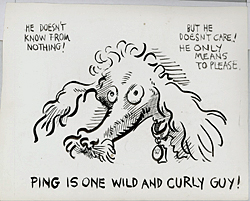 HE DOESN'T
KNOW FROM
NOTHING!
BUT HE
DOESN'T CARE!
HE ONLY
MEANS
TO PLEASE.
PING IS ONE WILD AND CURLY GUY!